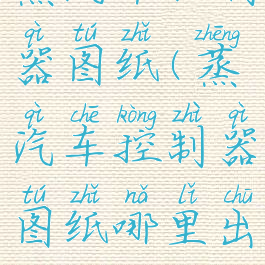 qì tú zhǐ zhēng
器图纸(蒸
qì chē kòng zhì qì
汽车控制器
tú zhǐ nǎ lǐ chū
图纸哪里出